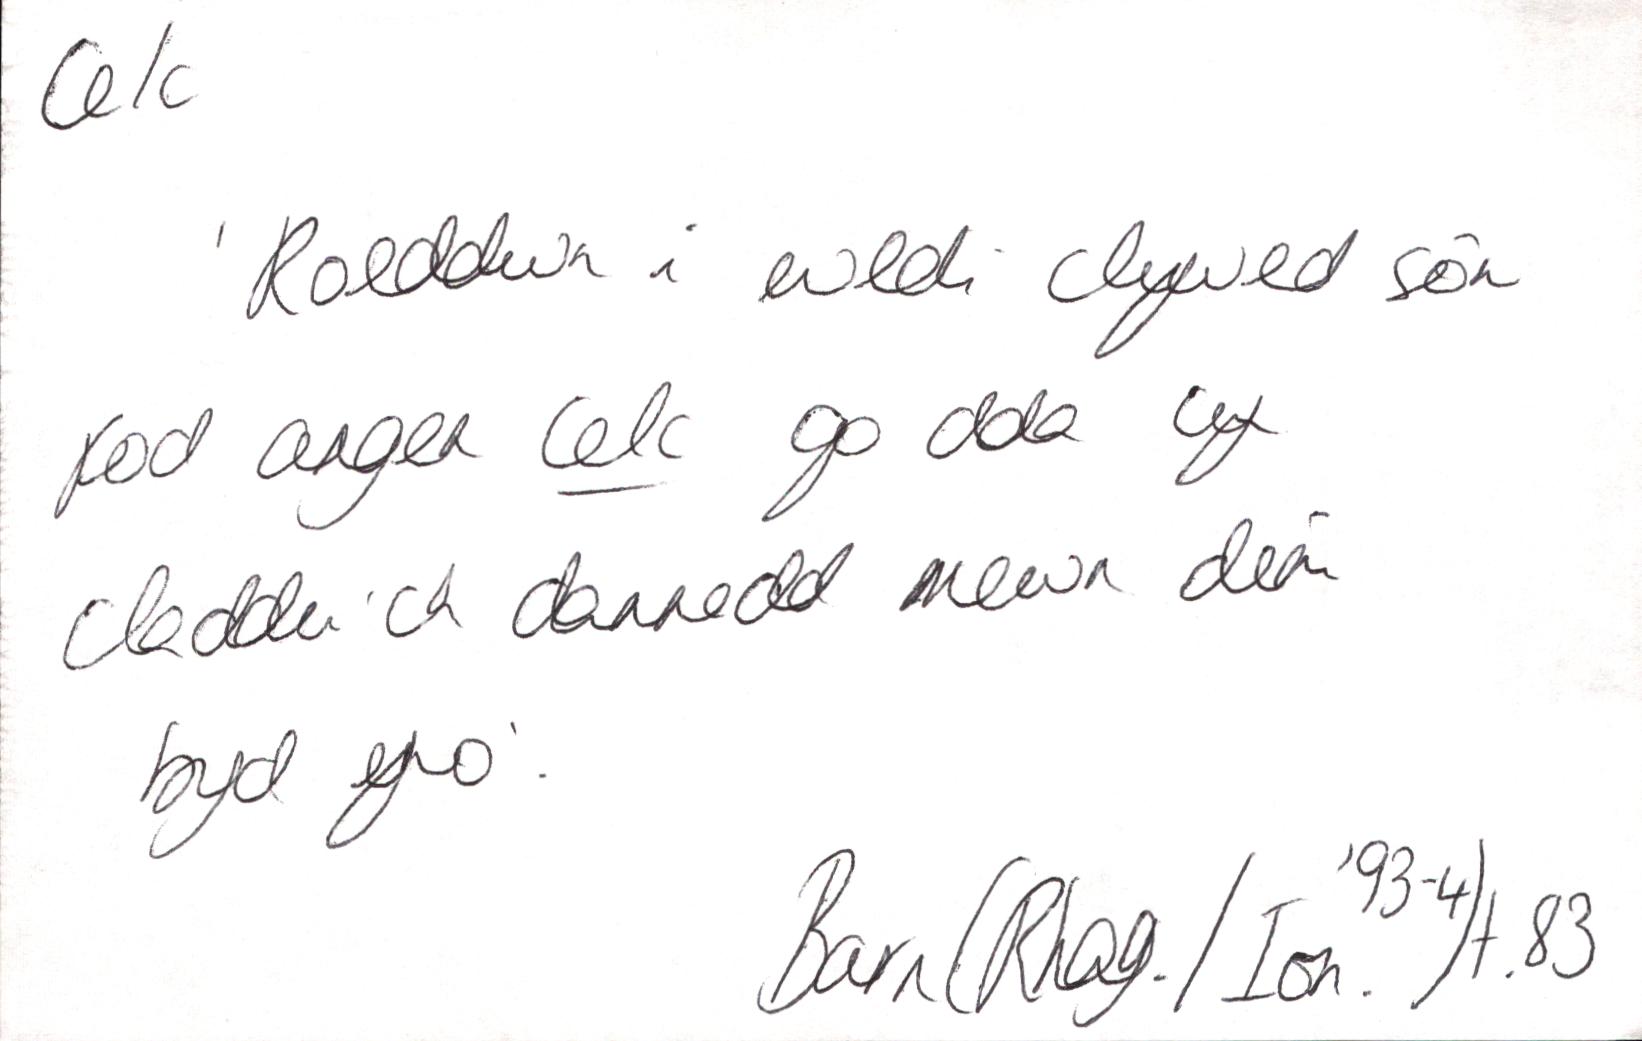 Celc
'Roeddwn i wedi clywed sôn
fod angen celc go dda cyn
claddu'ch dannedd mewn dim
byd yno'.
Barn (Rhag./Ion. '93-4) t.83